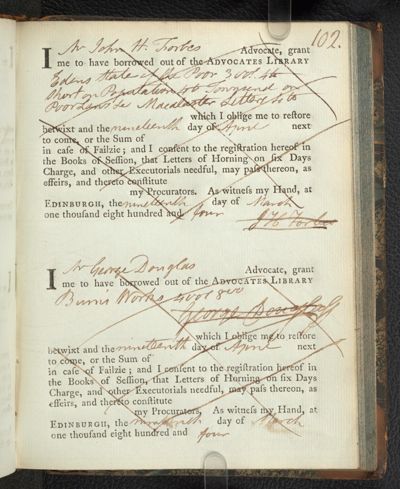 102.
I Mr John H. Forbes Advocate, grant
me to have borrowed out of the ADVOCATES LIBRARY
Edens State of the Poor 3 vol. 4to
Short on Population 4to Townsend on
Poor Laws 8vo Macallaster Letters 4to
which I oblige me to reſtore
betwixt and the nineteenth day of April next
to come, or the Sum of
in caſe of Failzie; and I conſent to the regiſtration hereof in
the Books of Seſſion, that Letters of Horning on ſix Days
Charge, and other Executorials needful, may paſs thereon, as
effeirs, and thereto conſtitute
my Procurators. As witneſs my Hand, at
EDINBURGH, the nineteenth day of March
one thouſand eight hundred and four
J H Forbes
I Mr George Douglas Advocate, grant
me to have borrowed out of the ADVOCATES LIBRARY
Burns Works 4 vol 8vo
George Douglas
which I oblige me to reſtore
betwixt and the nineteenth day of April next
to come, or the Sum of
in caſe of Failzie; and I conſent to the regiſtration hereof in
the Books of Seſſion, that Letters of Horning on ſix Days
Charge, and other Executorials needful, may paſs thereon, as
effeirs, and thereto conſtitute
my Procurators. As witneſs my Hand, at
EDINBURGH, the nineteenth day of March
one thouſand eight hundred and four